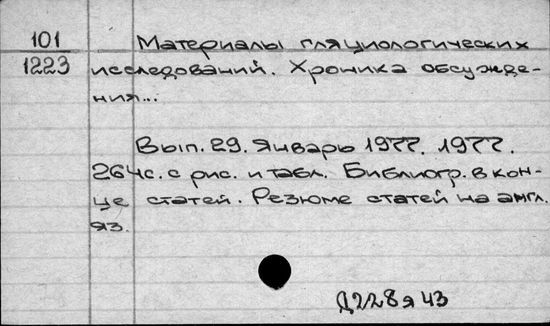 101
1223
Материалы гляциологических
исследований. Хроника обсужде-
ния...
Вып. 29. Январь 1977. 1977.
264с. с рис. и табл. Библиогр. в кон-
це статей. Резюме статей на англ.
яз.
Д228я43